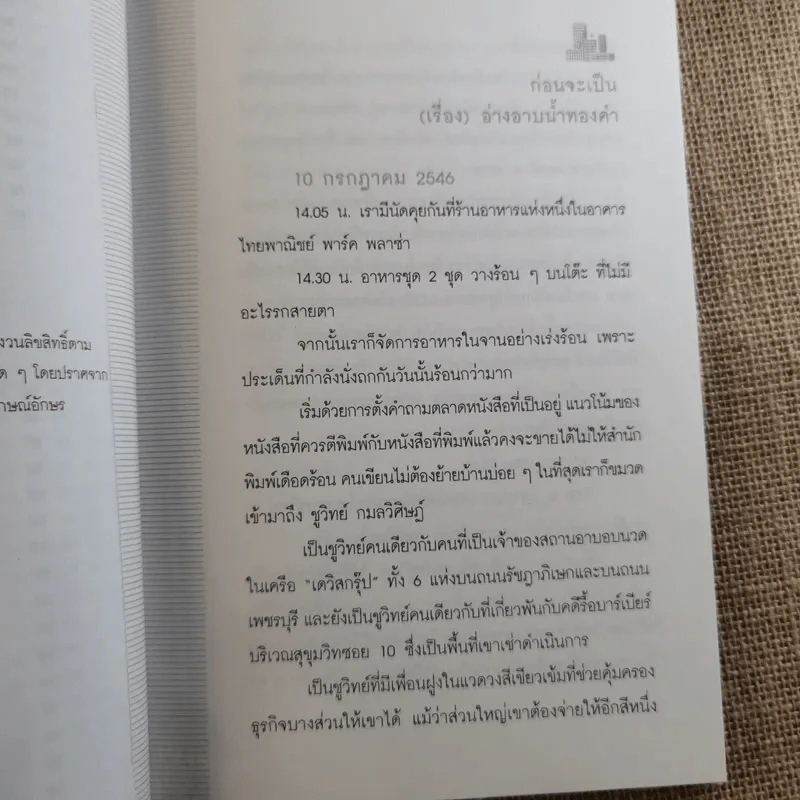 งวนลิขสิทธิ์ตาม
ด ๆ โดยปราศจาก
าษณ์อักษร
ก่อนจะเป็น
(เรื่อง) อ่างอาบน้ำทองคำ
10 กรกฎาคม 2546
14.05 น. เรามีนัดคุยกันที่ร้านอาหารแห่งหนึ่งในอาคาร
ไทยพาณิชย์ พาร์ค พลาซ่า
14.30 น. อาหารชุด 2 ชุด วางร้อน ๆ บนโต๊ะ ที่ไม่มี
อะไรรกสายตา
จากนั้นเราก็จัดการอาหารในจานอย่างเร่งร้อน เพราะ
ประเด็นที่กำลังนั่งถกกันวันนั้นร้อนกว่ามาก
เริ่มด้วยการตั้งคำถามตลาดหนังสือที่เป็นอยู่ แนวโน้มของ
หนังสือที่ควรตีพิมพ์กับหนังสือที่พิมพ์แล้วคงจะขายได้ไม่ให้สำนัก
พิมพ์เดือดร้อน คนเขียนไม่ต้องย้ายบ้านบ่อย ๆ ในที่สุดเราก็ขมวด
เข้ามาถึง ชูวิทย์ กมลวิศิษฎ์
เป็นชูวิทย์คนเดียวกับคนที่เป็นเจ้าของสถานอาบอบนวด
ในเครือ "เดวิสกรุ๊ป" ทั้ง 6 แห่งบนถนนรัชฎาภิเษกและบนถนน
เพชรบุรี และยังเป็นชูวิทย์คนเดียวกับที่เกี่ยวพันกับคดีรื้อบาร์เบียร์
บริเวณสุขุมวิทซอย 10 ซึ่งเป็นพื้นที่เขาเช่าดำเนินการ
เป็นชูวิทย์ที่มีเพื่อนฝูงในแวดวงสีเขียวเข้มที่ช่วยคุ้มครอง
ธุรกิจบางส่วนให้เขาได้ แม้ว่าส่วนใหญ่เขาต้องจ่ายให้อีกสีหนึ่ง